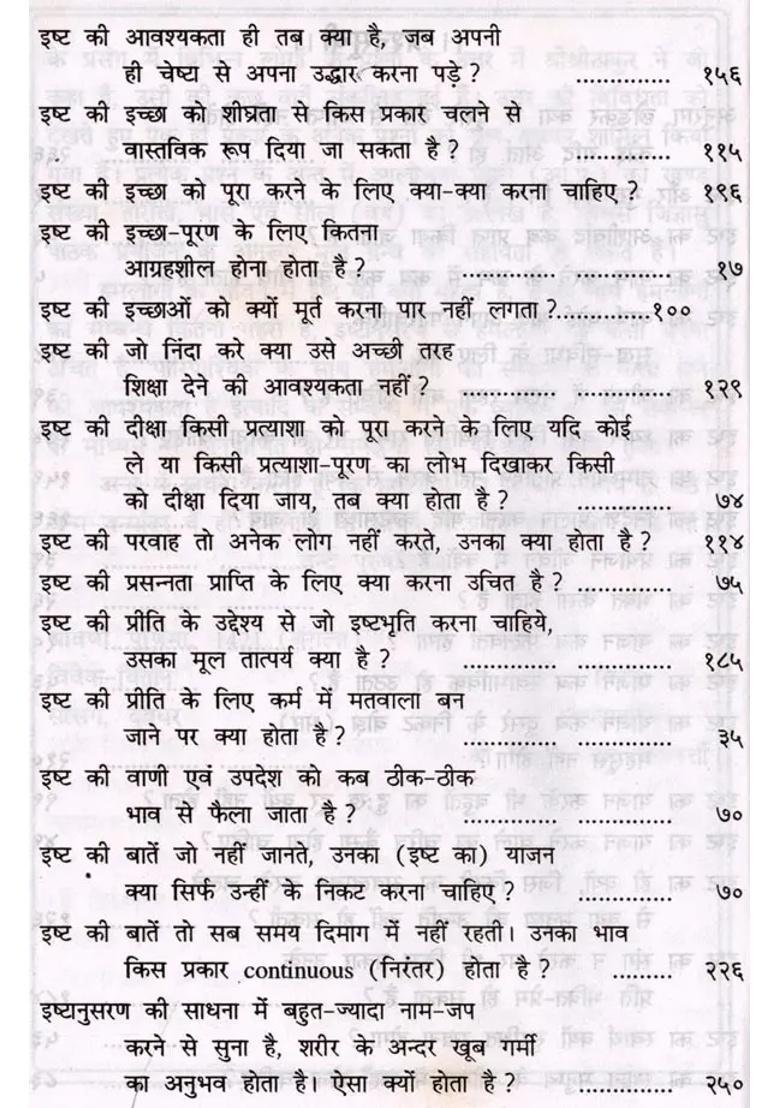 इष्ट की आवश्यकता ही तब क्या है, जब अपनी
ही चेष्टा से अपना उद्धार करना पड़े ? .............. १५६
इष्ट की इच्छा को शीघ्रता से किस प्रकार चलने से
वास्तविक रूप दिया जा सकता है ? .............. ११५
इष्ट की इच्छा को पूरा करने के लिए क्या-क्या करना चाहिए ? १९६
इष्ट की इच्छा-पूरण के लिए कितना
आग्रहशील होना होता है ? .............. .............. १७
इष्ट की इच्छाओं को क्यों मूर्त करना पार नहीं लगता ?.............१००
इष्ट की जो निंदा करे क्या उसे अच्छी तरह
शिक्षा देने की आवश्यकता नहीं ? .............. .............. १२९
इष्ट की दीक्षा किसी प्रत्याशा को पूरा करने के लिए यदि कोई
ले या किसी प्रत्याशा-पूरण का लोभ दिखाकर किसी
को दीक्षा दिया जाय, तब क्या होता है ? .............. ७४
इष्ट की परवाह तो अनेक लोग नहीं करते, उनका क्या होता है ? ११४
इष्ट की प्रसन्नता प्राप्ति के लिए क्या करना उचित है ? .............. ७५
इष्ट की प्रीति के उद्देश्य से जो इष्टभृति करना चाहिये,
उसका मूल तात्पर्य क्या है ? .............. .............. १८५
इष्ट की प्रीति के लिए कर्म में मतवाला बन
जाने पर क्या होता है ? .............. .............. ३५
इष्ट की वाणी एवं उपदेश को कब ठीक-ठीक
भाव से फैला जाता है ? .............. .............. ७०
इष्ट की बातें जो नहीं जानते, उनका (इष्ट का) याजन
क्या सिर्फ उन्हीं के निकट करना चाहिए ? .............. ७०
इष्ट की बातें तो सब समय दिमाग में नहीं रहती। उनका भाव
किस प्रकार continuous (निरंतर) होता है ? ......... २२६
इष्टानुसरण की साधना में बहुत-ज्यादा नाम-जप
करने से सुना है, शरीर के अन्दर खूब गर्मी
का अनुभव होता है। ऐसा क्यों होता है ? .............. २५०